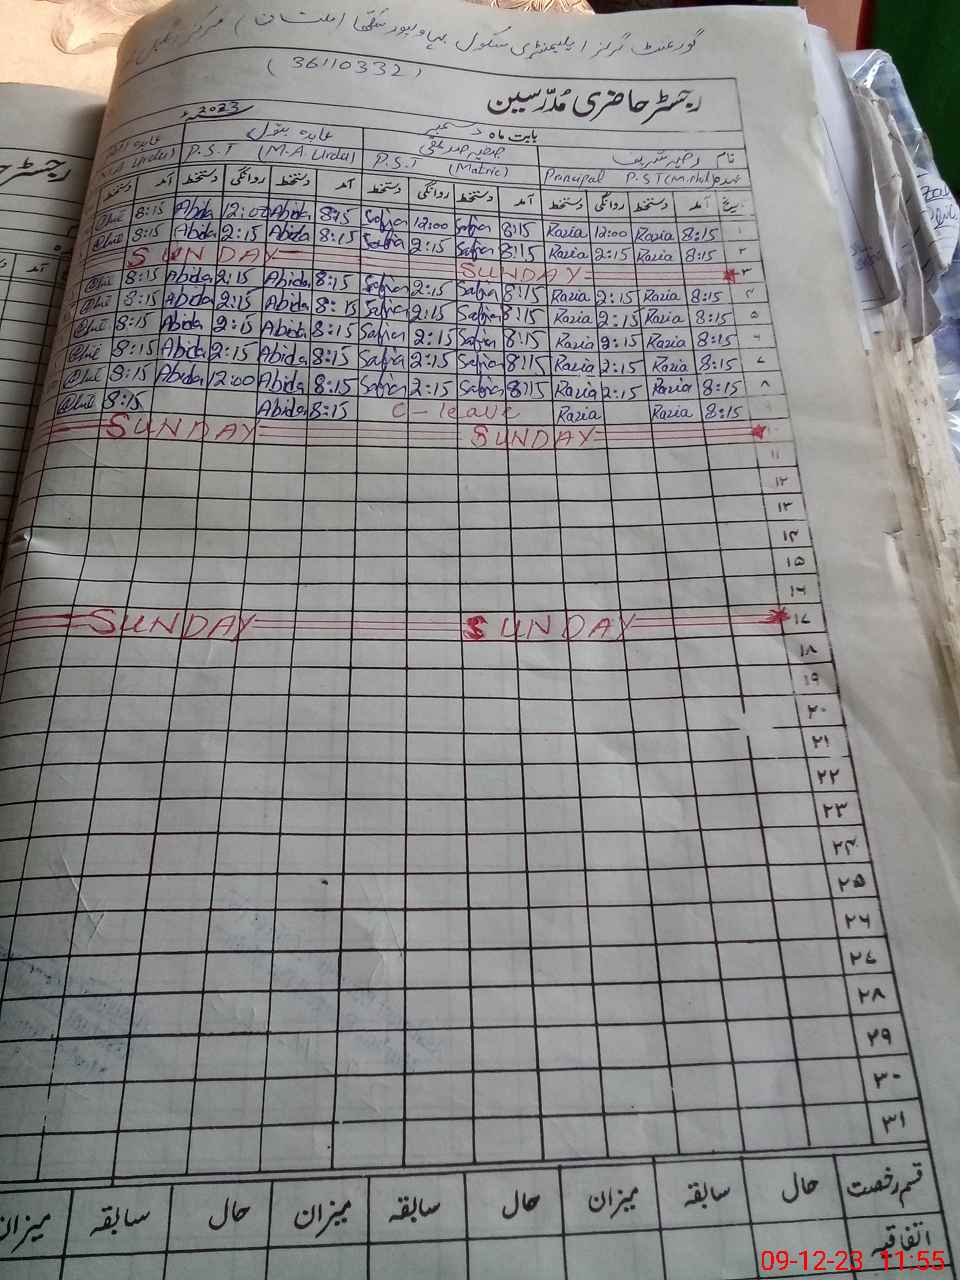 گورنمنٹ گرلز ایلیمنٹری سکول بہاولپور سکھا (ملتان) مرکز
(36110332)
رجسٹر حاضری مُدَرّسین
بابت ماہ دسمبر 2023ء
نام رضیہ شریف صفیہ صدیقی عابدہ بتول عابدہ
عہدہ Principal P.ST(M.Phil) P.S.T (Matric) P.S.T (M.A. Urdu) Urdu)
تاریخ آمد دستخط روانگی دستخط آمد دستخط روانگی دستخط آمد دستخط روانگی دستخط آمد دستخط
۱ 8:15 Razia 12:00 Razia 8:15 Safia 12:00 Safia 8:15 Abida 12:00 Abida 8:15
۲ 8:15 Razia 2:15 Razia 8:15 Safia 2:15 Safia 8:15 Abida 2:15 Abida 8:15
۳ SUNDAY SUNDAY
۴ 8:15 Razia 2:15 Razia 8:15 Safia 2:15 Safia 8:15 Abida 2:15 Abida 8:15
۵ 8:15 Razia 2:15 Razia 8:15 Safia 2:15 Safia 8:15 Abida 2:15 Abida 8:15
۶ 8:15 Razia 2:15 Razia 8:15 Safia 2:15 Safia 8:15 Abida 2:15 Abida 8:15
۷ 8:15 Razia 2:15 Razia 8:15 Safia 2:15 Safia 8:15 Abida 2:15 Abida 8:15
۸ 8:15 Razia 2:15 Razia 8:15 Safia 2:15 Safia 8:15 Abida 12:00 Abida 8:15
8:15 Razia Razia C-leave 8:15 Abida 8:15
۱۰ SUNDAY SUNDAY
۱۱
۱۲
۱۳
۱۴
۱۵
۱۶
۱۷ SUNDAY SUNDAY
۱۸
۱۹
۲۰
۲۱
۲۲
۲۳
۲۴
۲۵
۲۶
۲۷
۲۸
۲۹
۳۰
۳۱
قسم رخصت حال سابقہ میزان حال سابقہ میزان حال سابقہ میزان
اتفاقیہ
09-12-23 11:55